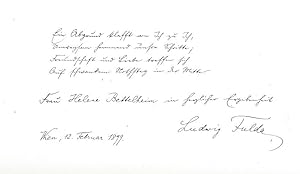 Ein Abgrund klafft von Ich zu Ich,
Freundschaft und Liebe treffen sich
Auf schwankem Nothsteg in der Mitte.
Frau Helene Bettelheim in herzlicher Ergebenheit
Wien, 12. Februar 1897.
Ludwig Fulda.